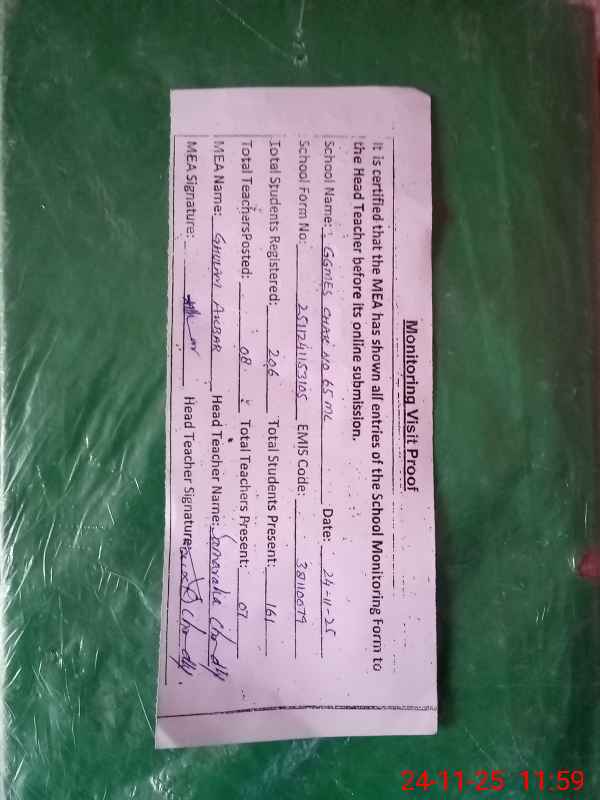 Monitoring Visit Proof
It is certified that the MEA has shown all entries of the School Monitoring Form to
the Head Teacher before its online submission.
School Name: GGMES CHAK NO 65 ML Date: 24-11-25
School Form No: 251124115310S EMIS Code: 38110079
Total Students Registered: 206 Total Students Present: 161
Total TeachersPosted: 08 Total Teachers Present: 07
MEA Name: GHULAM AKBAR Head Teacher Name:
MEA Signature: Head Teacher Signature:
24-11-25 11:59